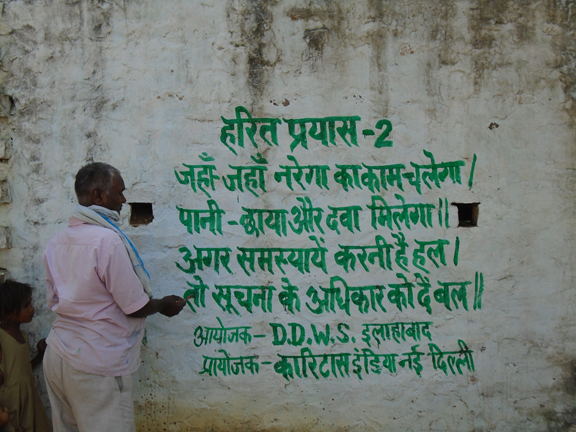 हरित प्रयास-2
जहाँ-जहाँ नरेगा का काम चलेगा।
पानी-छाया और दवा मिलेगा॥
अगर समस्यायें करनी है हल।
तो सूचना के अधिकार को दें बल॥
आयोजक- D.D.W.S. इलाहाबाद
प्रायोजक- कारिटास इंडिया नई दिल्ली